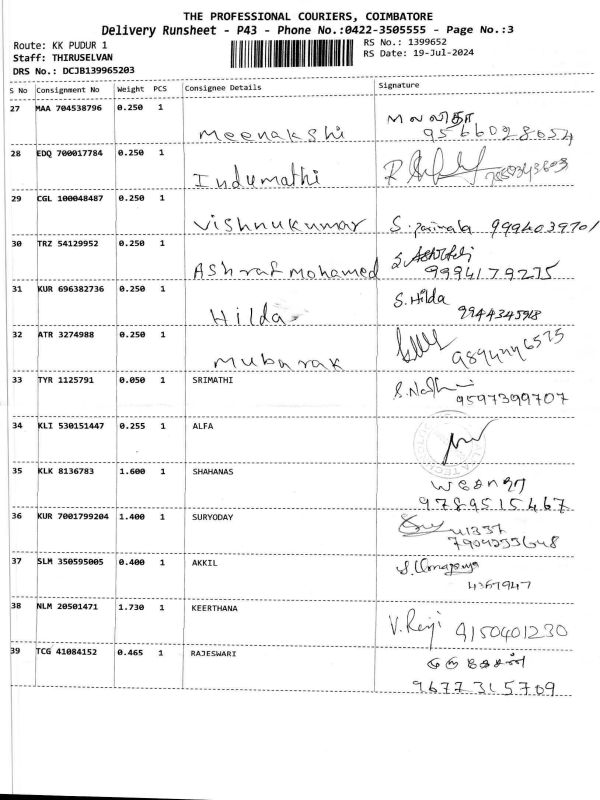 THE PROFESSIONAL COURIERS, COIMBATORE
Delivery Runsheet - P43 - Phone No.:0422-3505555 - Page No.:3
Route: KK PUDUR 1 RS No.: 1399652
Staff: THIRUSELVAN RS Date: 19-Jul-2024
DRS No.: DCJB139965203
S No Consignment No Weight PCS Consignee Details Signature
27 MAA 704538796 0.250 1 Meenakshi மலலிதா
9566028654
28 EDQ 700017784 0.250 1 Indumathi
29 CGL 100048487 0.250 1 Vishnukumar S. parimala 9994039701
30 TRZ 54129952 0.250 1 Ashraf Mohamed
9994179275
31 KUR 696382736 0.250 1 Hilda S. Hilda
9944345968
32 ATR 3274988 0.250 1 Mubarak
33 TYR 1125791 0.050 1 SRIMATHI
9597399707
34 KLI 530151447 0.255 1 ALFA
35 KLK 8136783 1.600 1 SHAHANAS
9789515467
36 KUR 7001799204 1.400 1 SURYODAY
37 SLM 350595005 0.400 1 AKKIL
4367947
38 NLM 20501471 1.730 1 KEERTHANA V. Renji 9150401230
39 TCG 41084152 0.465 1 RAJESWARI முருகேசன்
9677315709